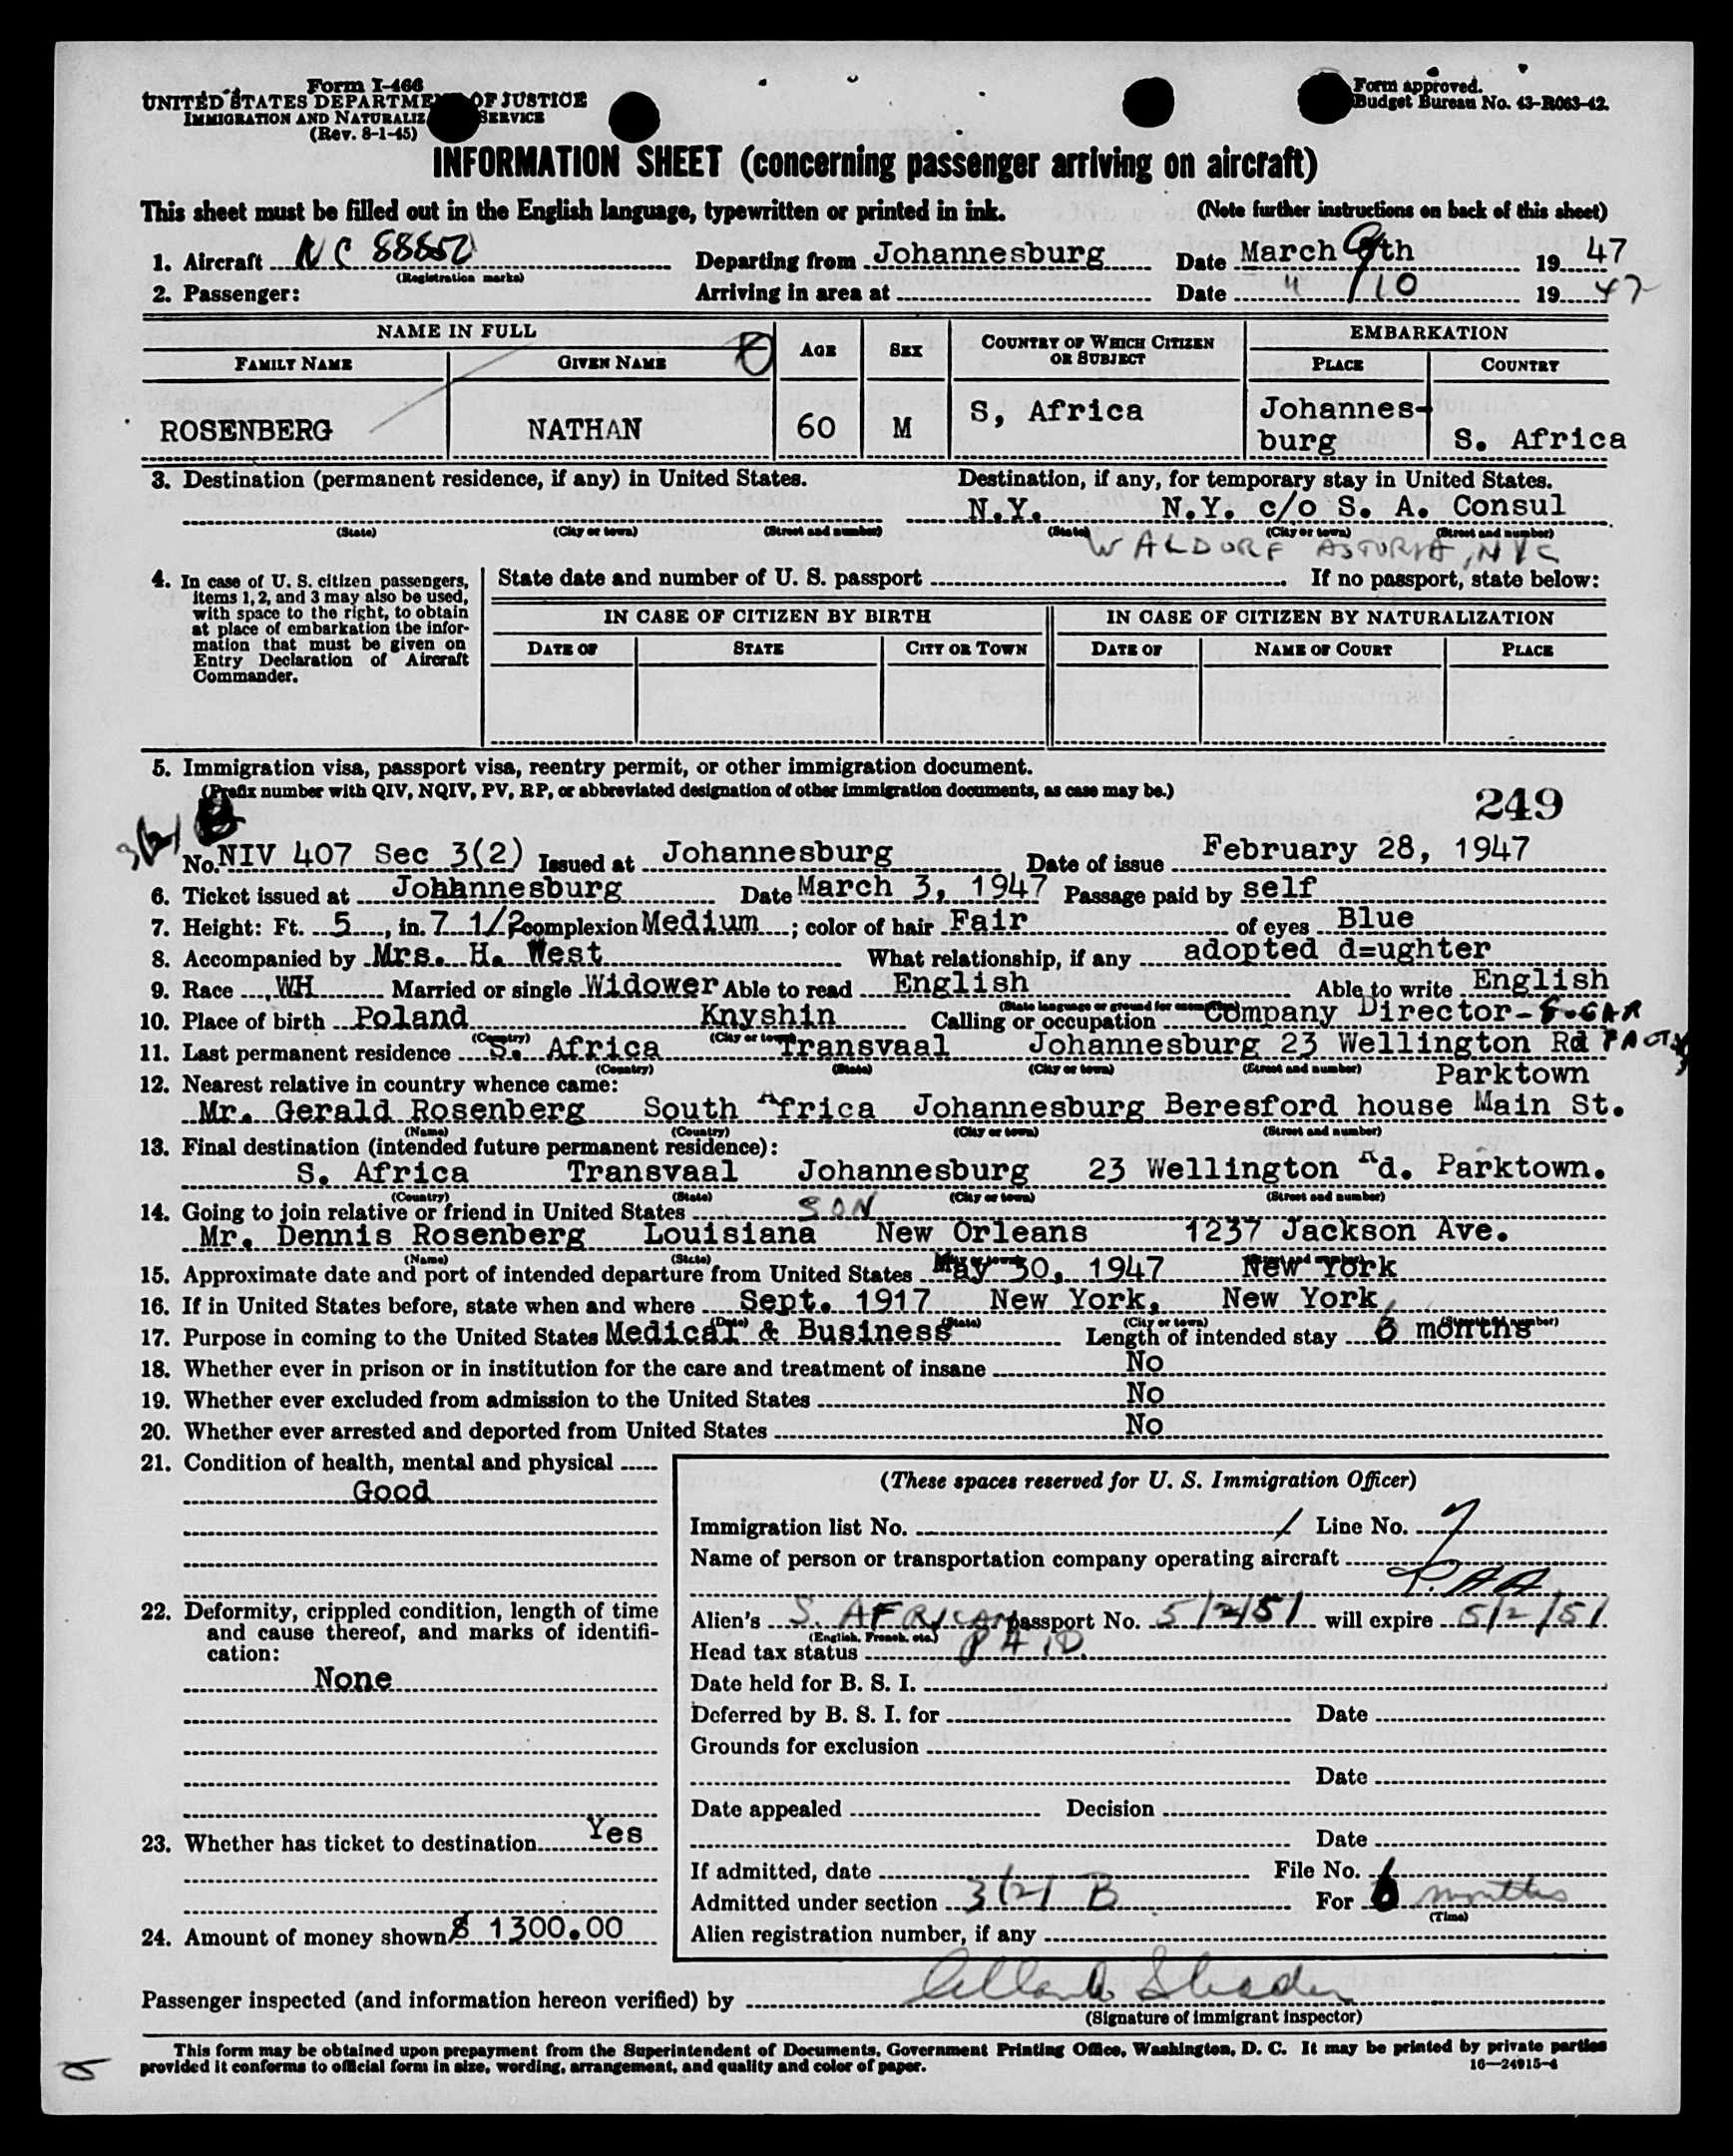 Form I-466
UNITED STATES DEPARTMENT OF JUSTICE
IMMIGRATION AND NATURALIZ SERVICE
(Rev. 8-1-45)
Form approved.
Budget Bureau No. 43-R063-42.
INFORMATION SHEET (concerning passenger arriving on aircraft)
This sheet must be filled out in the English language, typewritten or printed in ink. (Note further instructions on back of this sheet)
1. Aircraft NC 88852 Departing from Johannesburg Date March 9th 1947
(Registration marks)
2. Passenger: Arriving in area at Date " 10 1947
NAME IN FULL AGE SEX COUNTRY OF WHICH CITIZEN OR SUBJECT EMBARKATION
FAMILY NAME GIVEN NAME PLACE COUNTRY
ROSENBERG NATHAN 60 M S, Africa Johannes-burg S. Africa
3. Destination (permanent residence, if any) in United States. Destination, if any, for temporary stay in United States.
N.Y. N.Y. c/o S. A. Consul
(State) (City or town) (Street and number) (State) (City or town) (Street and number)
WALDORF ASTORIA, NYC
4. In case of U. S. citizen passengers, items 1, 2, and 3 may also be used, with space to the right, to obtain at place of embarkation the information that must be given on Entry Declaration of Aircraft Commander.
State date and number of U. S. passport If no passport, state below:
IN CASE OF CITIZEN BY BIRTH IN CASE OF CITIZEN BY NATURALIZATION
DATE OF STATE CITY OR TOWN DATE OF NAME OF COURT PLACE
5. Immigration visa, passport visa, reentry permit, or other immigration document.
(Prefix number with QIV, NQIV, PV, RP, or abbreviated designation of other immigration documents, as case may be.)
249
3(2) B
No. NIV 407 Sec 3(2) Issued at Johannesburg Date of issue February 28, 1947
6. Ticket issued at Johhnnesburg Date March 3, 1947 Passage paid by self
7. Height: Ft. 5, in. 7 1/2 complexion Medium; color of hair Fair of eyes Blue
8. Accompanied by Mrs. H. West What relationship, if any adopted d=ughter
9. Race WH Married or single Widower Able to read English Able to write English
(State language or ground for exemption)
10. Place of birth Poland Knyshin Calling or occupation Company Director-
(Country) (City or town)
11. Last permanent residence S. Africa Transvaal Johannesburg 23 Wellington Rd
(Country) (State) (City or town) (Street and number) Parktown
12. Nearest relative in country whence came:
Mr. Gerald Rosenberg South Africa Johannesburg Beresford house Main St.
(Name) (Country) (City or town) (Street and number)
13. Final destination (intended future permanent residence):
S. Africa Transvaal Johannesburg 23 Wellington Rd. Parktown.
(Country) (State) (City or town) (Street and number)
14. Going to join relative or friend in United States SON
Mr. Dennis Rosenberg Louisiana New Orleans 1237 Jackson Ave.
(Name) (State) (City or town) (Street and number)
15. Approximate date and port of intended departure from United States May 30, 1947 New York
16. If in United States before, state when and where Sept. 1917 New York, New York,
(Date) (State) (City or town) (Street and number)
17. Purpose in coming to the United States Medical & Business Length of intended stay 6 months
18. Whether ever in prison or in institution for the care and treatment of insane No
19. Whether ever excluded from admission to the United States No
20. Whether ever arrested and deported from United States No
21. Condition of health, mental and physical
Good
22. Deformity, crippled condition, length of time and cause thereof, and marks of identification:
None
23. Whether has ticket to destination Yes
24. Amount of money shown $ 1300.00
(These spaces reserved for U. S. Immigration Officer)
Immigration list No. 1 Line No. 7
Name of person or transportation company operating aircraft
P.AA
Alien's S. AFRICAN passport No. 5/2/51 will expire 5/2/51
(English, French, etc.)
Head tax status PAID.
Date held for B. S. I.
Deferred by B. S. I. for Date
Grounds for exclusion
Date
Date appealed Decision
Date
If admitted, date File No.
Admitted under section 3(2) B For 6 months
(Time)
Alien registration number, if any
Passenger inspected (and information hereon verified) by
(Signature of immigrant inspector)
This form may be obtained upon prepayment from the Superintendent of Documents, Government Printing Office, Washington, D. C. It may be printed by private parties
provided it conforms to official form in size, wording, arrangement, and quality and color of paper.
16—24915-4